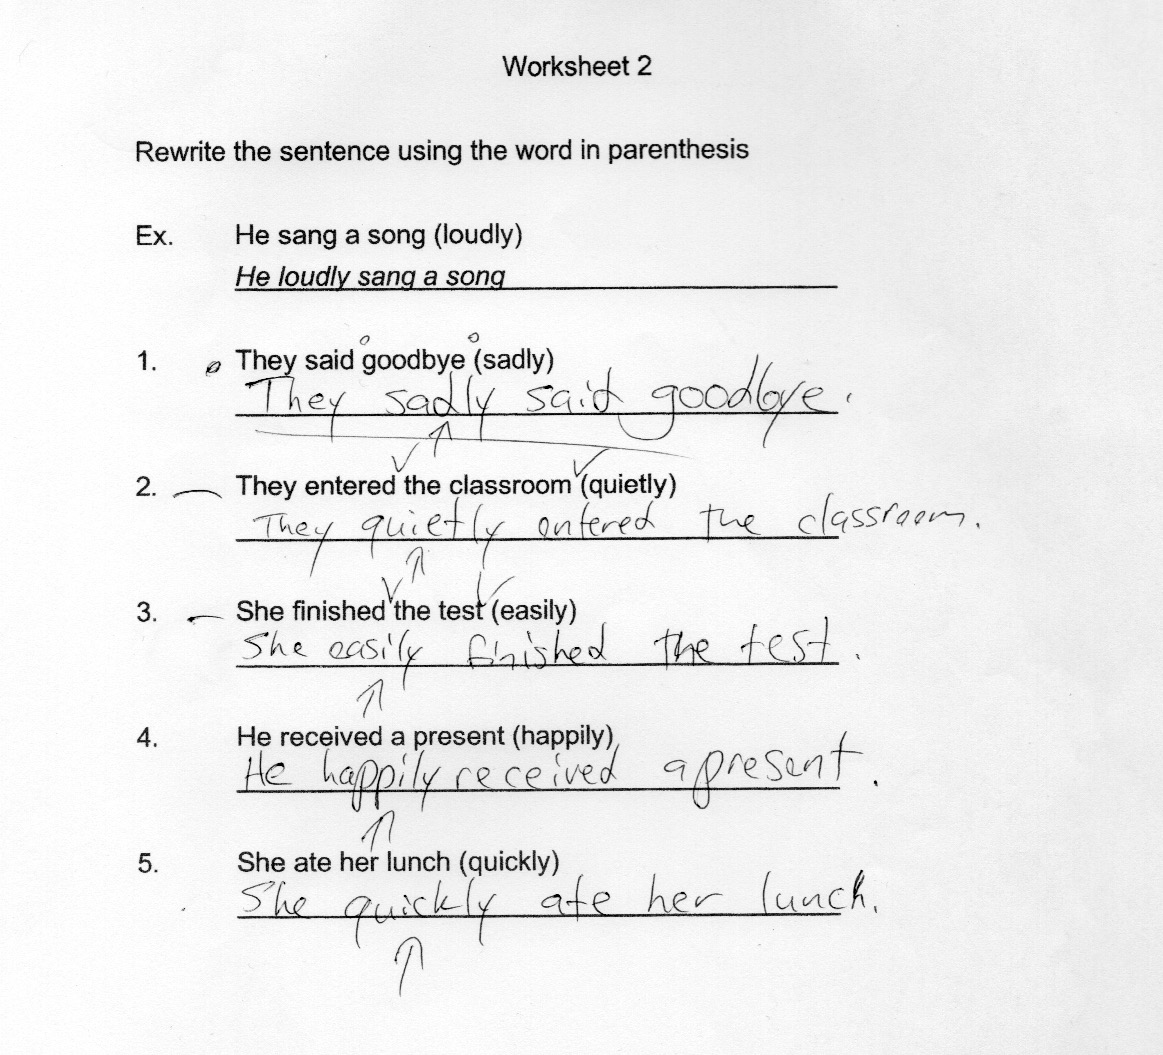 Worksheet 2
Rewrite the sentence using the word in parenthesis
Ex. He sang a song (loudly)
He loudly sang a song
1. They said goodbye (sadly)
They sadly said goodbye.
2. They entered the classroom (quietly)
They quietly entered the classroom.
3. She finished the test (easily)
She easily finished the test.
4. He received a present (happily)
He happily received a present.
5. She ate her lunch (quickly)
She quickly ate her lunch.